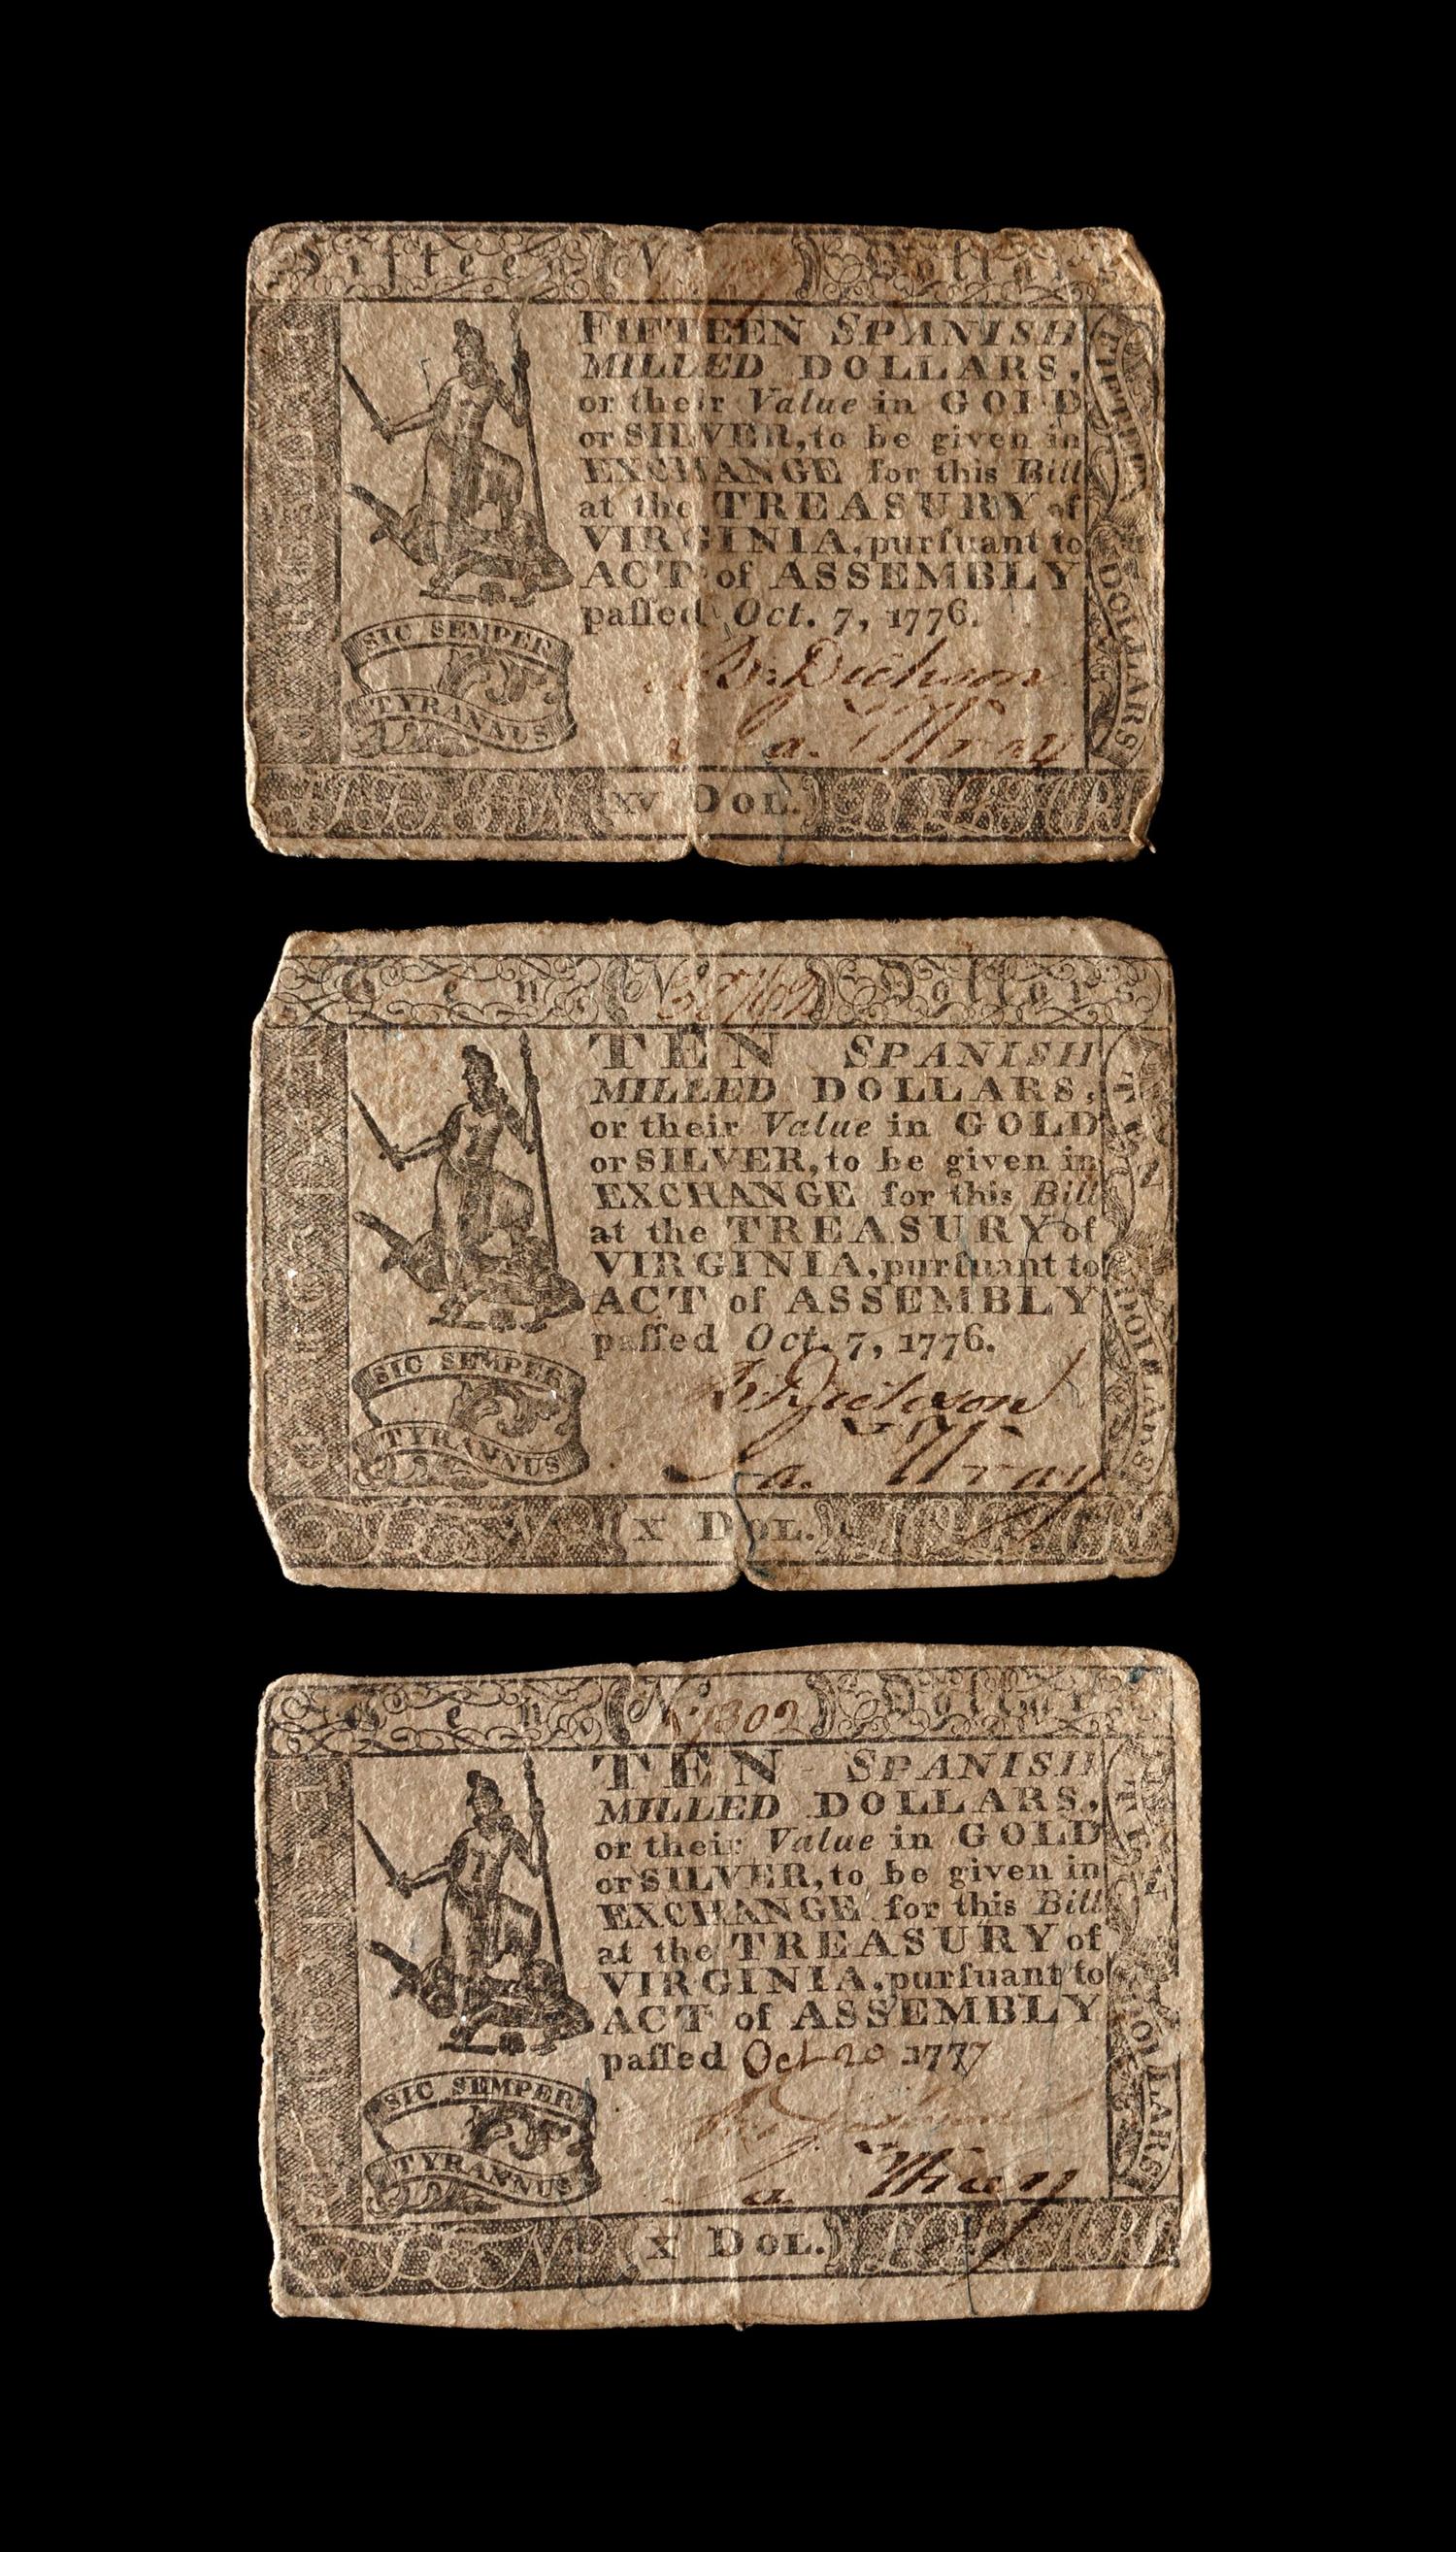 Fifteen No Dollars
FIFTEEN SPANISH
MILLED DOLLARS,
or their Value in GOLD
or SILVER, to be given in
EXCHANGE for this Bill
at the TREASURY of
VIRGINIA, purſuant to
ACT of ASSEMBLY
paſſed Oct. 7, 1776.
SIC SEMPER
TYRANNUS
B. Dickson
Ja. Wray
XV DOL.
FIFTEEN DOLLARS
Ten No Dollars
TEN SPANISH
MILLED DOLLARS,
or their Value in GOLD
or SILVER, to be given in
EXCHANGE for this Bill
at the TREASURY of
VIRGINIA, purſuant to
ACT of ASSEMBLY
paſſed Oct. 7, 1776.
SIC SEMPER
TYRANNUS
B. Dickson
Ja. Wray
X DOL.
TEN DOLLARS
Ten No Dollars
TEN SPANISH
MILLED DOLLARS,
or their Value in GOLD
or SILVER, to be given in
EXCHANGE for this Bill
at the TREASURY of
VIRGINIA, purſuant to
ACT of ASSEMBLY
paſſed Oct 20 1777
SIC SEMPER
TYRANNUS
Ja. Wray
X DOL.
TEN DOLLARS